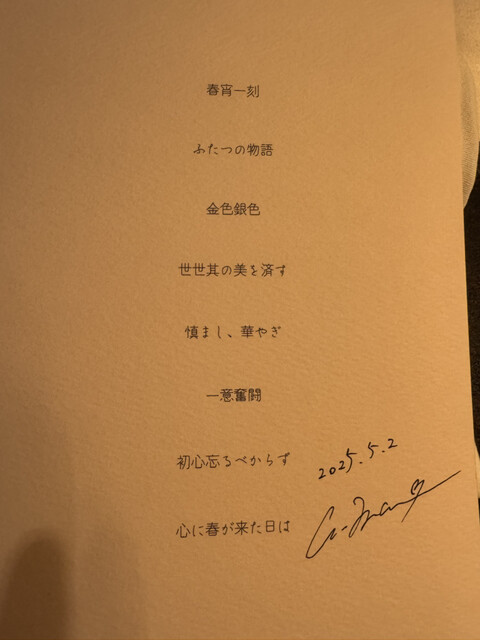 春宵一刻
ふたつの物語
金色銀色
世世其の美を済す
慎まし、華やぎ
一意奮闘
初心忘るべからず
2025.5.2
心に春が来た日は